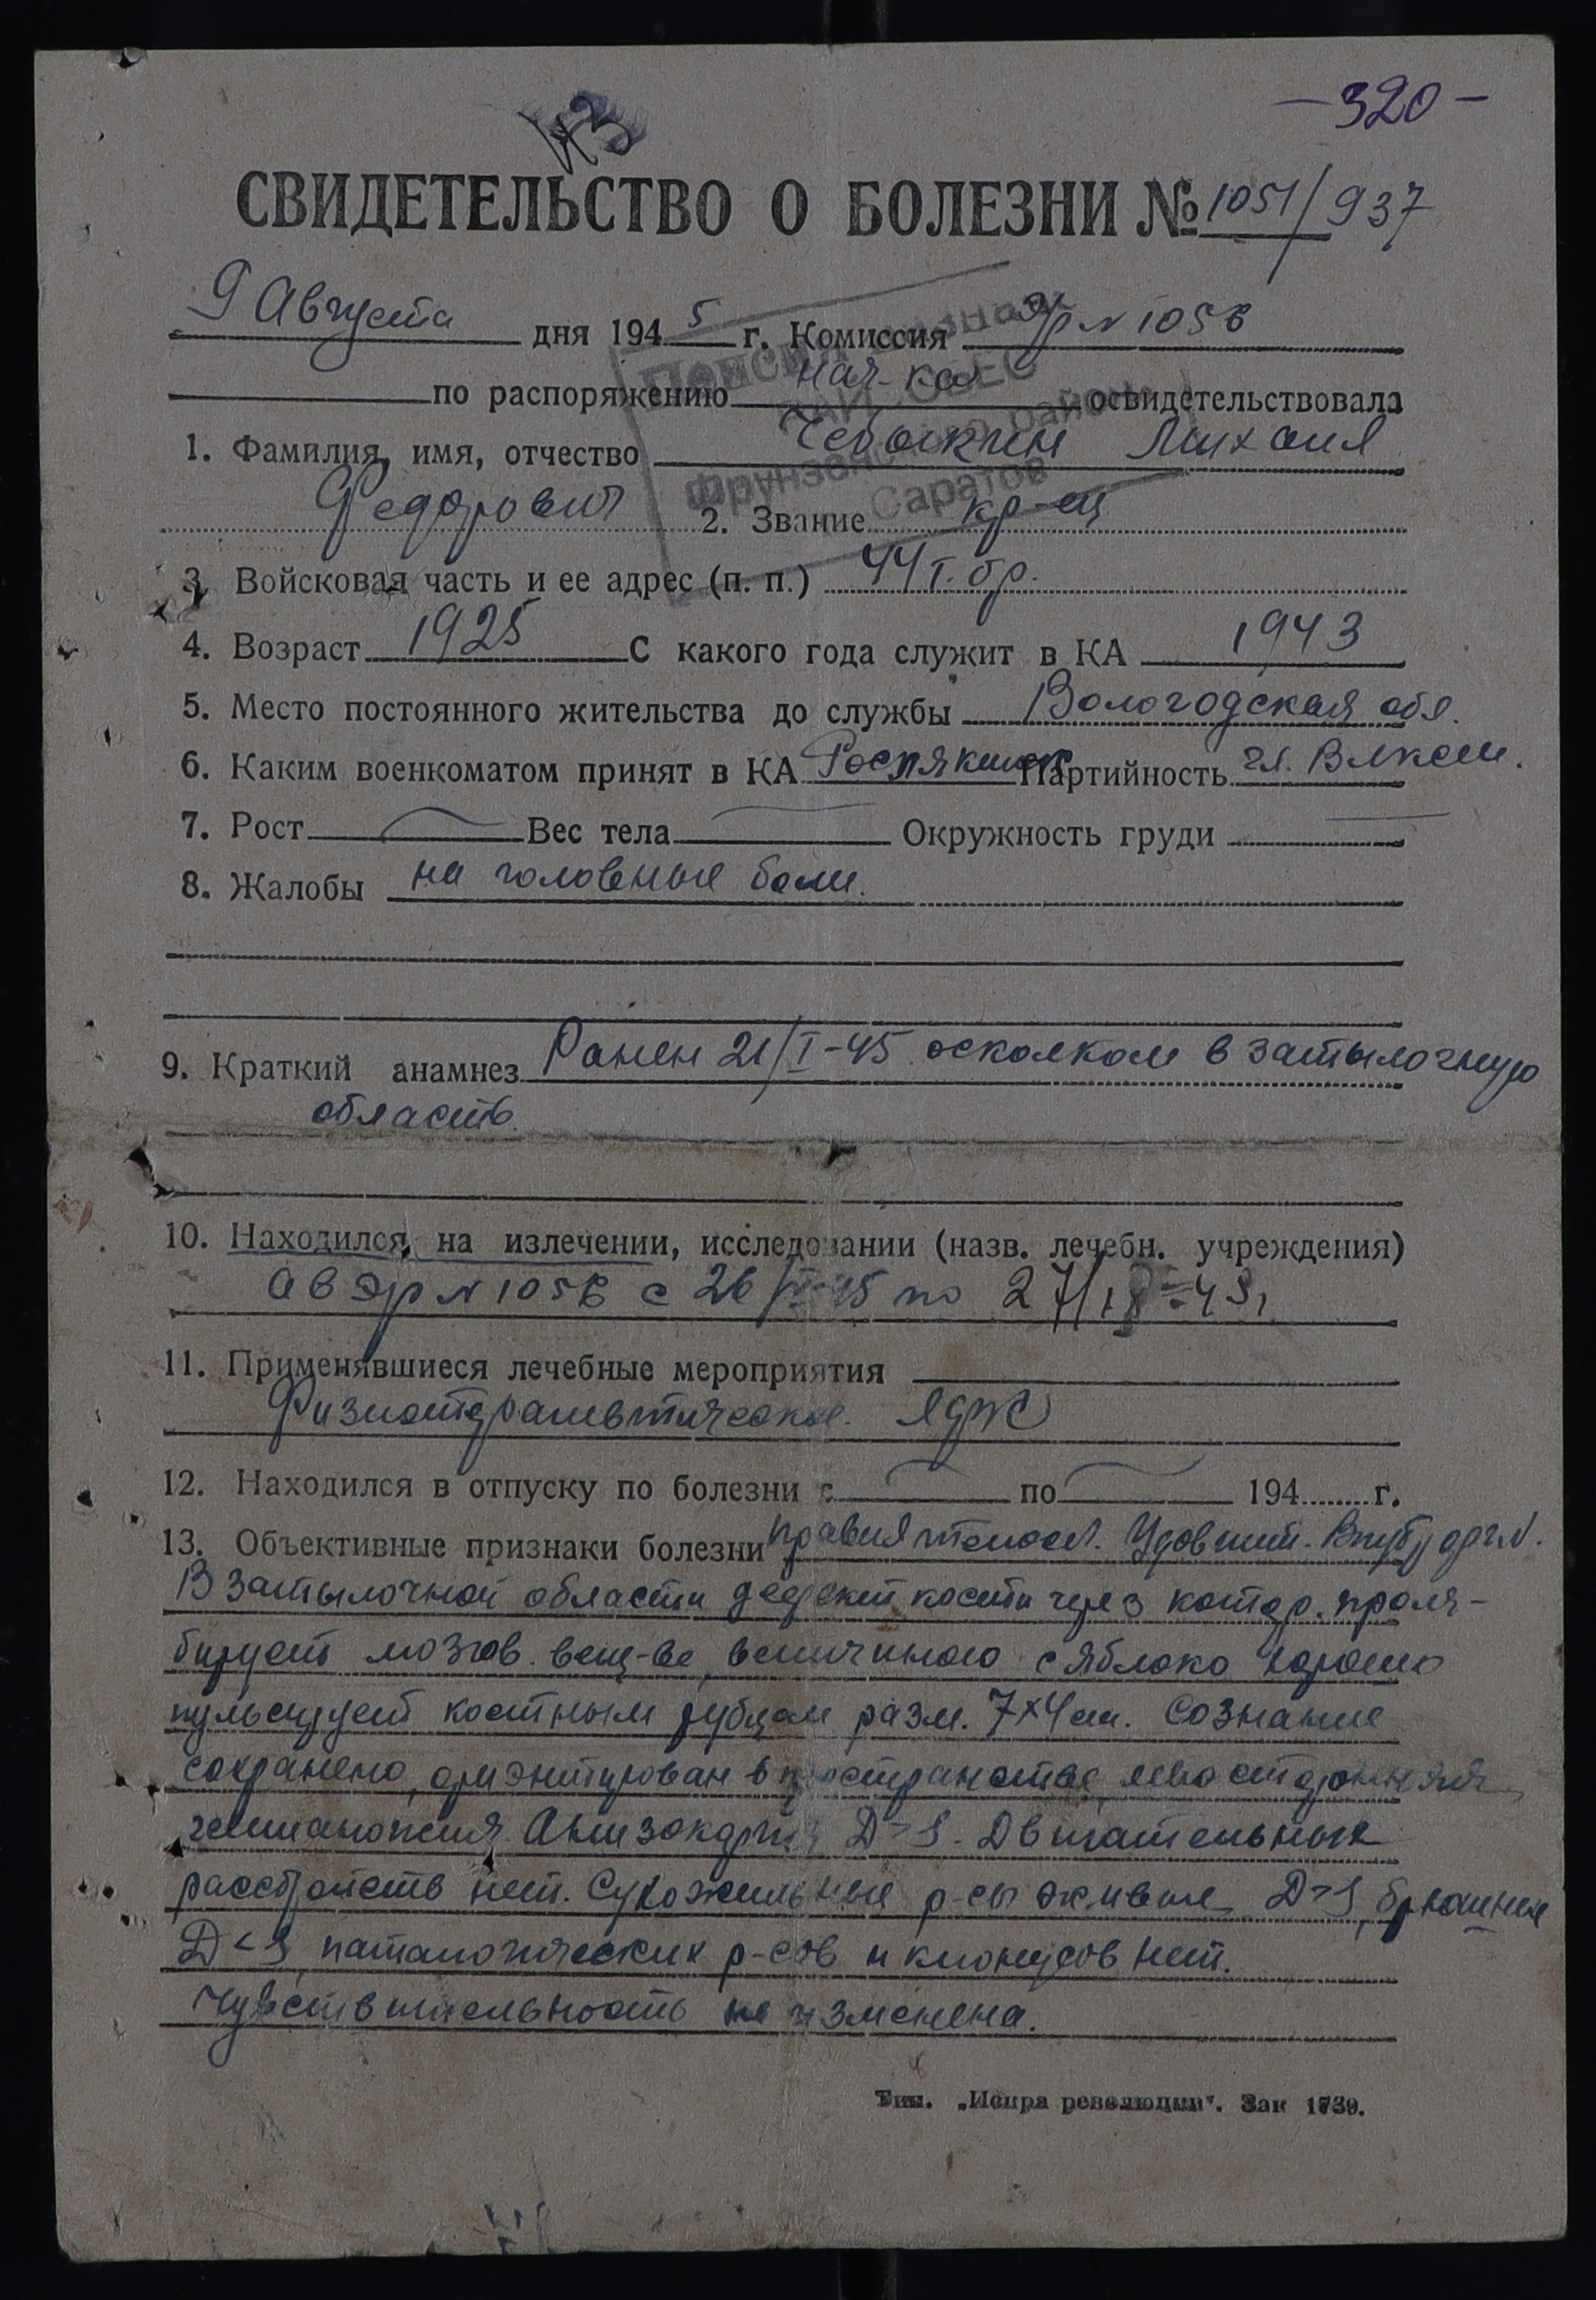 — 320 —
43
СВИДЕТЕЛЬСТВО О БОЛЕЗНИ № 1051/937
9 Августа дня 1945 г. Комиссия эг N 1056
по распоряжению нач-ка освидетельствовала
Пенсия
Фрунзенского района
Саратов
1. Фамилия, имя, отчество Чебыкин Михаил
Федорович 2. Звание кр-ец
3. Войсковая часть и ее адрес (п. п.) 44 т. бр.
4. Возраст 1925 С какого года служит в КА 1943
5. Место постоянного жительства до службы Вологодская обл.
6. Каким военкоматом принят в КА Партийность чл. Влксм.
7. Рост Вес тела Окружность груди
8. Жалобы на головные боли.
9. Краткий анамнез Ранен 21/I-45 осколком в затылочную
область.
10. Находился на излечении, исследовании (назв. лечебн. учреждения)
а в эг N 1056 с 26/ 45 по 27/
11. Применявшиеся лечебные мероприятия
Физиотерапевтическое. ЛФК
12. Находился в отпуску по болезни с по 194 г.
13. Объективные признаки болезни правил телосл. Удовлит. Внутр орг. N.
В затылочной области дефект кости через котор. проля-
бирует мозгов. вещ-во, величиною с яблоко хорошо
пульсирует костным рубцом разм. 7×4 см. Сознание
сохранено, ориэнтирован в пространстве, левосторонняя
гемианопсия. Анизокория D>S. Двигательных
расстройств нет. Сухожильные р-сы живые D>S, брюшные
D<S, патологических р-сов и клонусов нет.
Чувствительность не изменена.
Тип. „Искра революции“. Зак 1739.